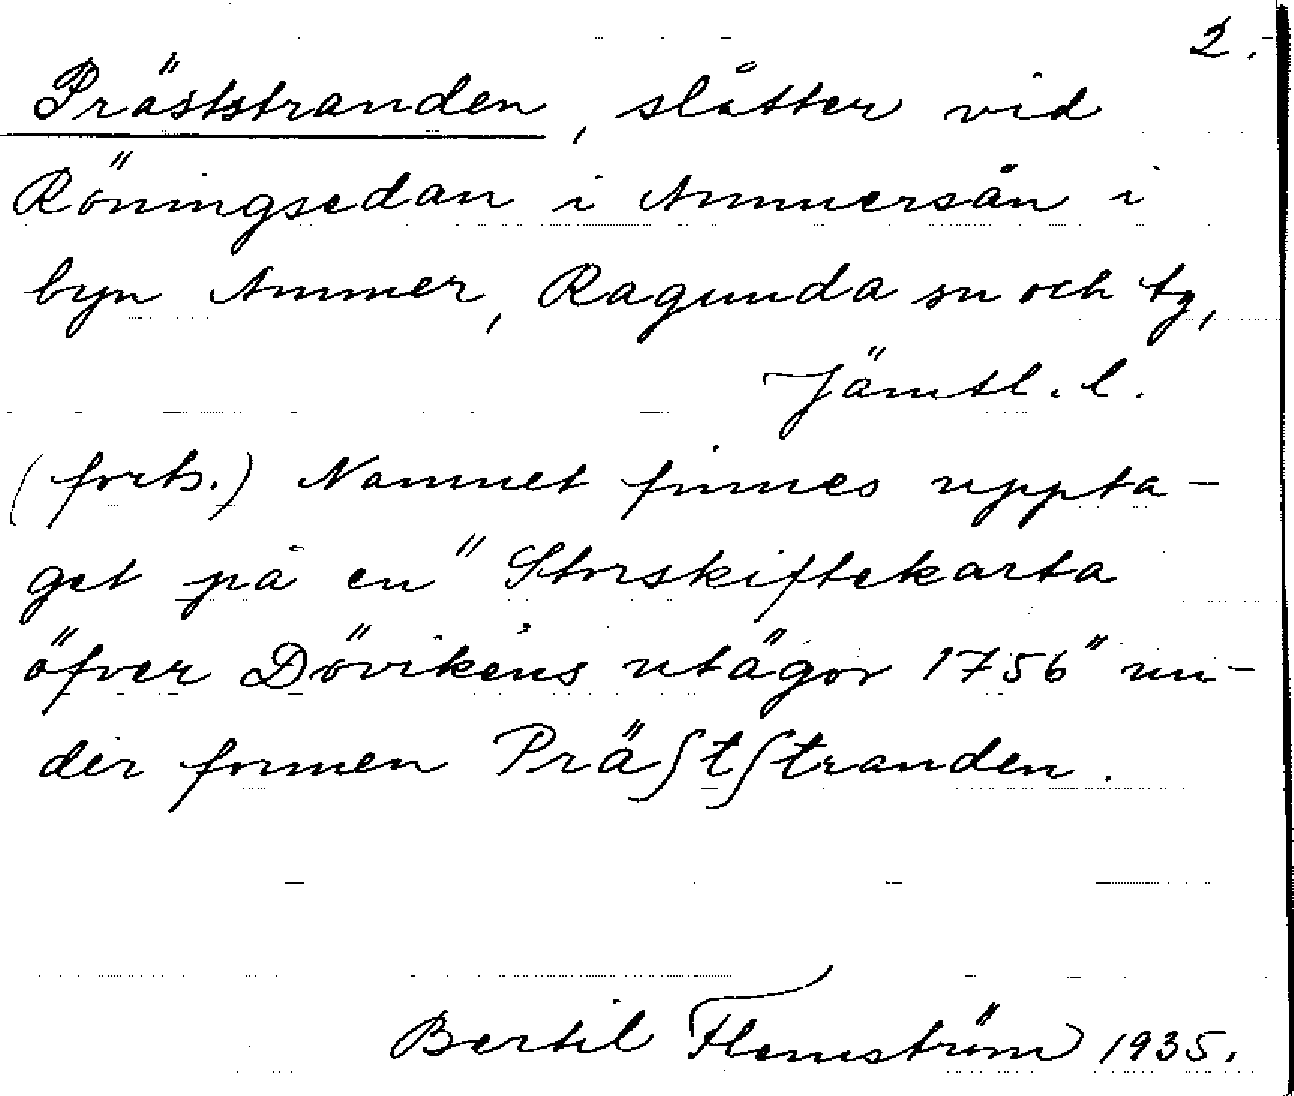 2.
Präststranden, slåtter vid
Röningsedan i Ammersån i
byn Ammer, Ragunda sn och tg,
Jämtl. l.
(forts.) Namnet finnes uppta-
get på en "Storskiftekarta
öfver Dövikens utägor 1756" un-
der formen Präſtſtranden.
Bertil Flemström 1935.